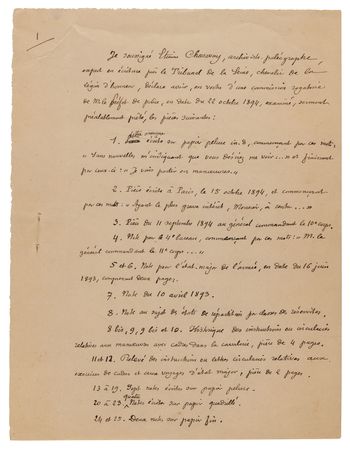 1
Je soussigné Etienne Charavay, archiviste paléographe
expert en écriture près le Tribunal de la Seine, chevalier de la
légion d'honneur, déclare avoir, en vertu d'une commission rogatoire
de M. le Préfet de police, en date du 22 octobre 1894, examiné, serment
préalablement prêté, les pièces suivantes :
1. Lettre missive écrite sur papier pelure in-8, commençant par ces mots :
« Sans nouvelles m'indiquant que vous désirez me voir... » et finissant
par ceux-ci : « Je vais partir en manœuvres. »
2. Pièce écrite à Paris, le 15 octobre 1894, et commençant
par ces mots : « Ayant le plus grave intérêt, Monsieur, à rentrer... »
3. Pièce du 11 septembre 1894 au général commandant le 10e corps
4. Note pour le 4e bureau, commençant par ces mots : « M. le
général commandant le 11e corps... »
5 et 6. Note pour l'état-major de l'armée, en date du 16 juin
1893, comprenant deux pages.
7. Note du 10 avril 1893.
8. Note au sujet des états de répartition par classes de réservistes.
8 bis, 9, 9 bis et 10. Historique des instructions ou circulaires
relatives aux manœuvres avec cadres dans la cavalerie, pièce de 4 pages.
11 et 12. Relevé des instructions ou lettres circulaires relatives aux
exercices de cadres et aux voyages d'état major, pièce de 2 pages.
13 à 19. Sept notes écrites sur papier pelure.
20 à 23. Quatre notes écrites sur papier quadrillé.
24 et 25. Deux notes sur papier fin.